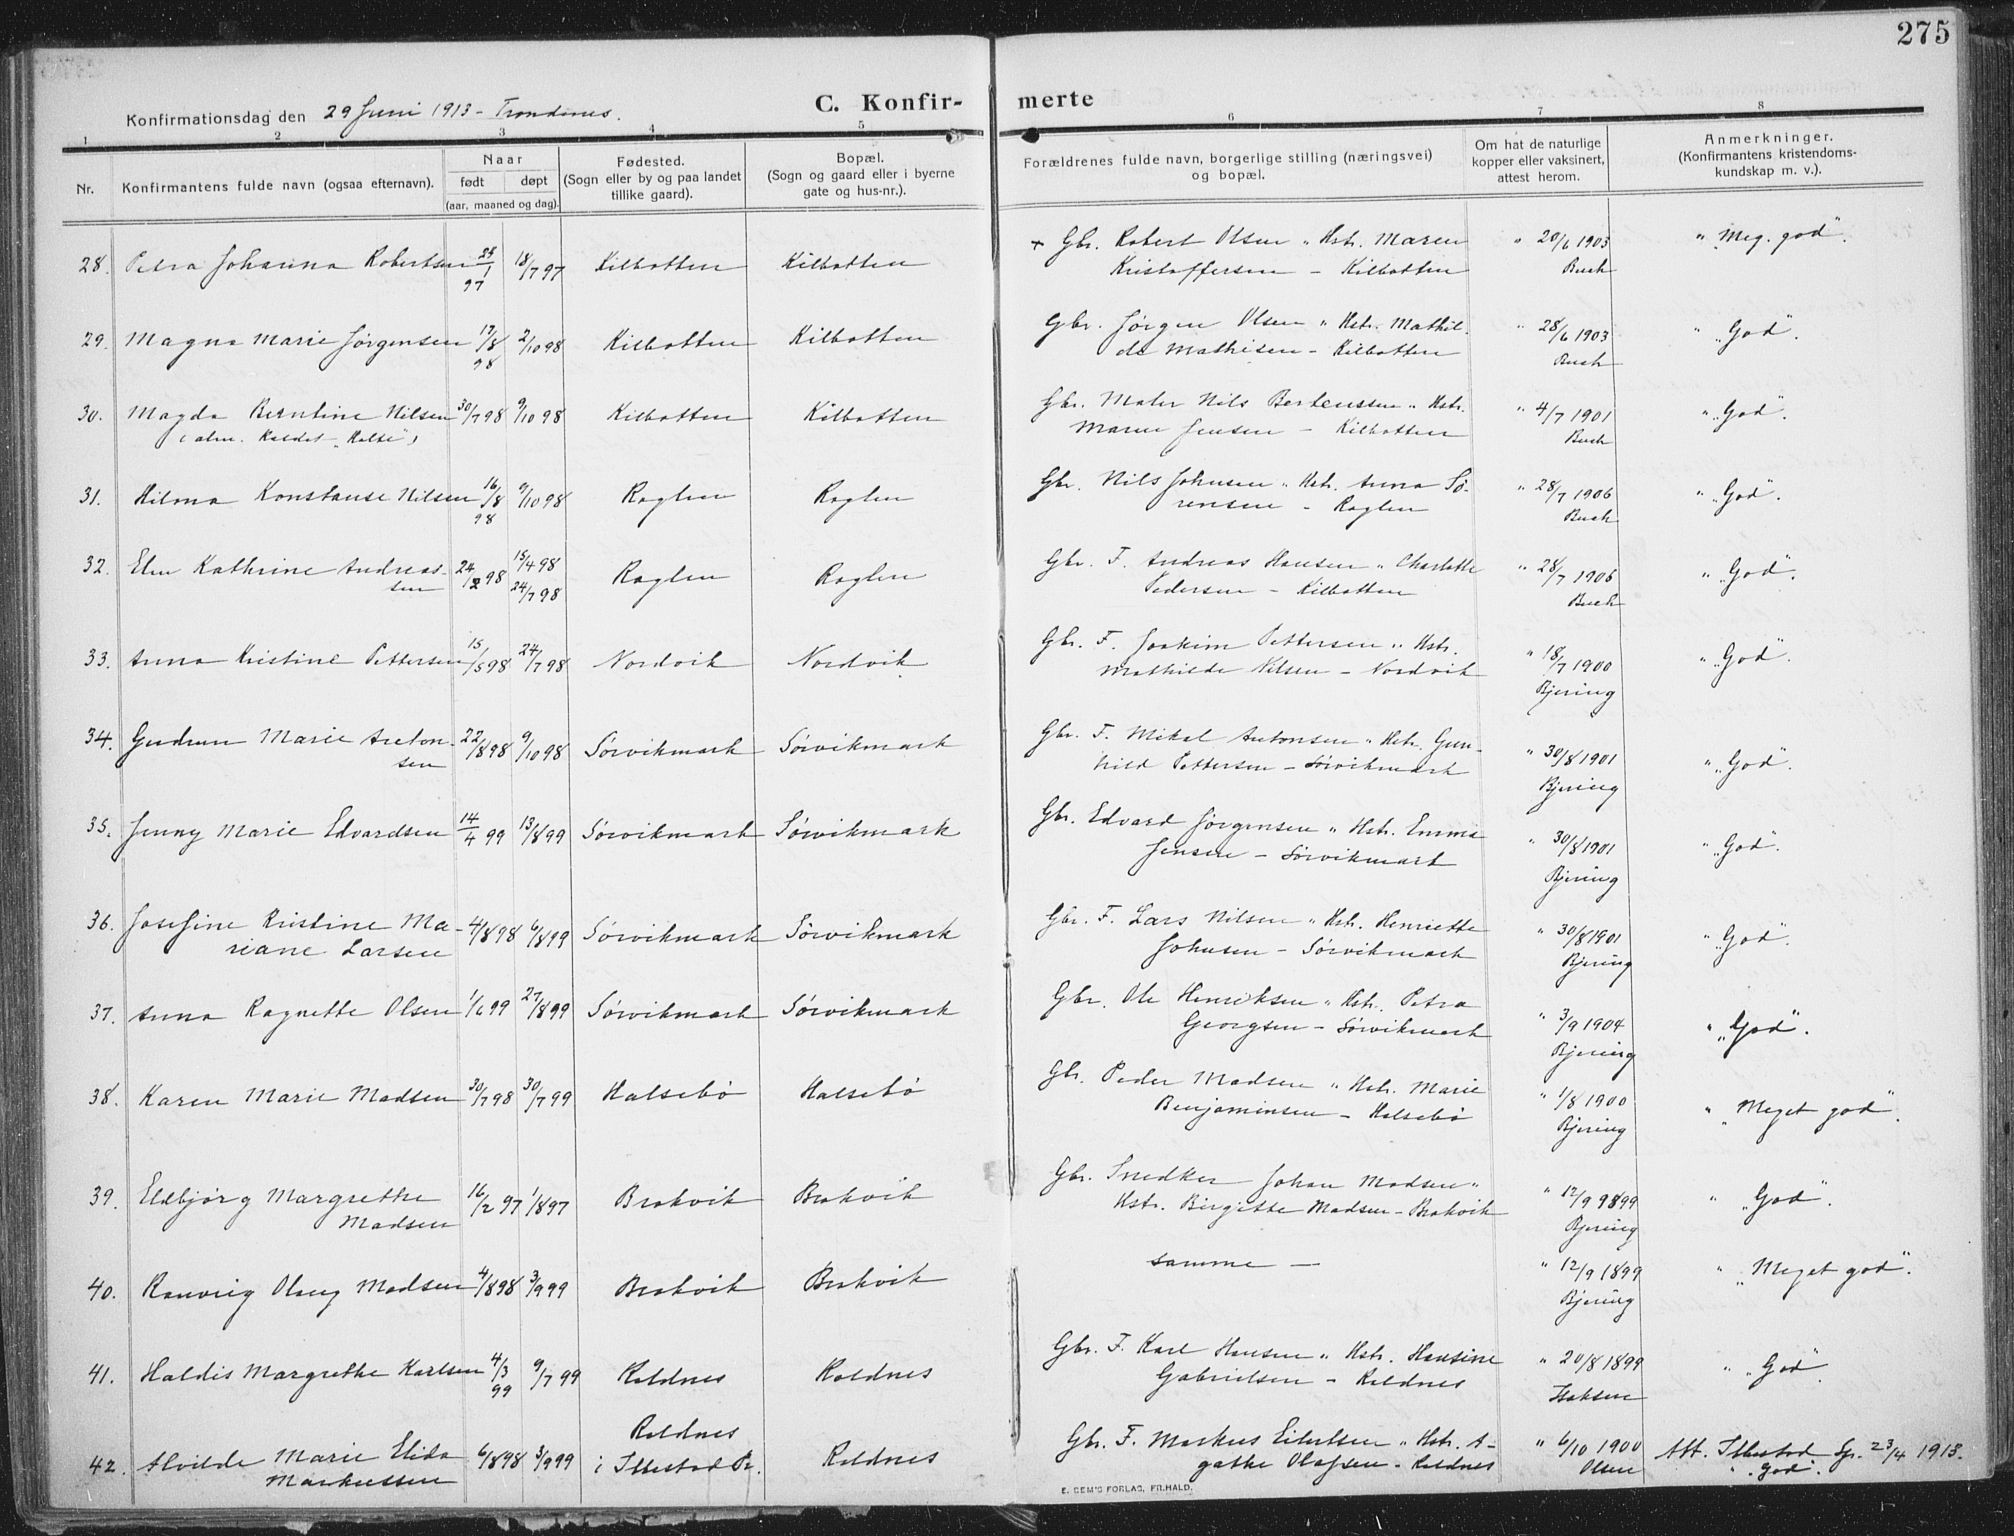 275
Konfirmationsdag den 29 Juni 1913 - Trondenes.
C. Konfir- merte
1 2 3 4 5 6 7 8
Nr. Konfirmantens fulde navn (ogsaa efternavn). Naar født døpt (aar, maaned og dag). Fødested. (Sogn eller by og paa landet tillike gaard). Bopæl. (Sogn og gaard eller i byerne gate og hus-nr.). Forældrenes fulde navn, borgerlige stilling (næringsvei) og bopæl. Om hat de naturlige kopper eller vaksinert, attest herom. Anmerkninger. (Konfirmantens kristendoms- kundskap m. v.).
28. Petra Johanna Robertsen 25/1 97 18/7 97 Kilbotten Kilbotten + Gbr. Robert Olsen " Hstr. Maren " 20/6 1903 " Meg. god".
Kristoffersen - Kilbotten Buch
29. Magna Marie Jørgensen 17/8 98 2/10 98 Kilbotten Kilbotten Gbr. Jørgen Olsen " Hstr. Mathil- " 28/6 1903 " "God".
de Mathisen - Kilbotten Buch
30. Magda Berntine Nilsen 30/7 98 9/10 98 Kilbotten Kilbotten Gbr. Maler Nils Bertenssen " Hstr. " 4/7 1901 " "God".
(alm. kaldet "Halse") Maren Jensen - Kilbotten Buch
31. Hilma Konstanse Nilsen 16/8 98 9/10 98 Roglen Roglen Gbr. Nils Johnsen " Hstr. Anna Sø- " 28/7 1906 " "God".
rensen - Roglen Buch
32. Elen Kathrine Andreas- 24/2 98 15/4 98 Roglen Roglen Gbr. F. Andreas Hansen " Charlotte " 28/7 1906 " "God".
sen 24/7 98 Pedersen - Kilbotten Buch
33. Anna Kristine Pettersen 15/5 98 24/7 98 Nordvik Nordvik Gbr. F. Joakim Pettersen " Hstr. " 18/7 1900 " "God".
Mathilde Nilsen - Nordvik Bjering
34. Gudrun Marie Anton- 22/8 98 9/10 98 Sørvikmark Sørvikmark Gbr. F. Mikal Antonsen " Hstr. Gun- " 30/8 1901 " "God".
sen hild Pettersen - Sørvikmark Bjering
35. Jenny Marie Edvardsen 14/4 99 13/8 99 Sørvikmark Sørvikmark Gbr. Edvard Jørgensen " Hstr. Emma " 30/8 1901 " "God".
Jensen - Sørvikmark Bjering
36. Josefine Kristine Ma- 4/8 98 6/8 99 Sørvikmark Sørvikmark Gbr. F. Lars Nilsen " Hstr. Henriette " 30/8 1901 " "God".
riane Larsen Johnsen - Sørvikmark Bjering
37. Anna Ragnette Olsen 1/6 99 27/8 99 Sørvikmark Sørvikmark Gbr. Ole Henriksen " Hstr. Petra " 3/9 1904 " "God".
Georgsen - Sørvikmark Bjering
38. Karen Marie Madsen 30/7 98 30/7 99 Halsebø Halsebø Gbr. Peder Madsen " Hstr. Marie " 1/8 1900 " "Meget god".
Benjaminsen - Halsebø Bjering
39. Eldbjørg Margrethe 16/2 97 1/8 97 Brokvik Brokvik Gbr. Snedker Johan Madsen " " 12/9 9899 " "God".
Madsen Hstr. Birgitte Madsen - Brokvik Bjering
40. Ranveig Olaug Madsen 4/8 98 3/9 99 Brokvik Brokvik samme - " 12/9 1899 " "Meget god".
Bjering
41. Haldis Margrethe Karlsen 4/3 99 9/7 99 Roldnes Roldnes Gbr. F. Karl Hansen " Hstr. Hansine " 20/8 1899 " "God".
Gabrielsen - Roldnes
42. Alvilde Marie Elida 6/8 98 3/9 99 Roldnes Roldnes Gbr. F. Markus Eilertsen " Hstr. A- " 6/10 1900 Att. Ibbestad Sp. 23/4 1913.
Markussen i Ibbestad Pr. gathe Olafsen - Roldnes Olsen "God".
E. SEM'S FORLAG, FR.HALD.